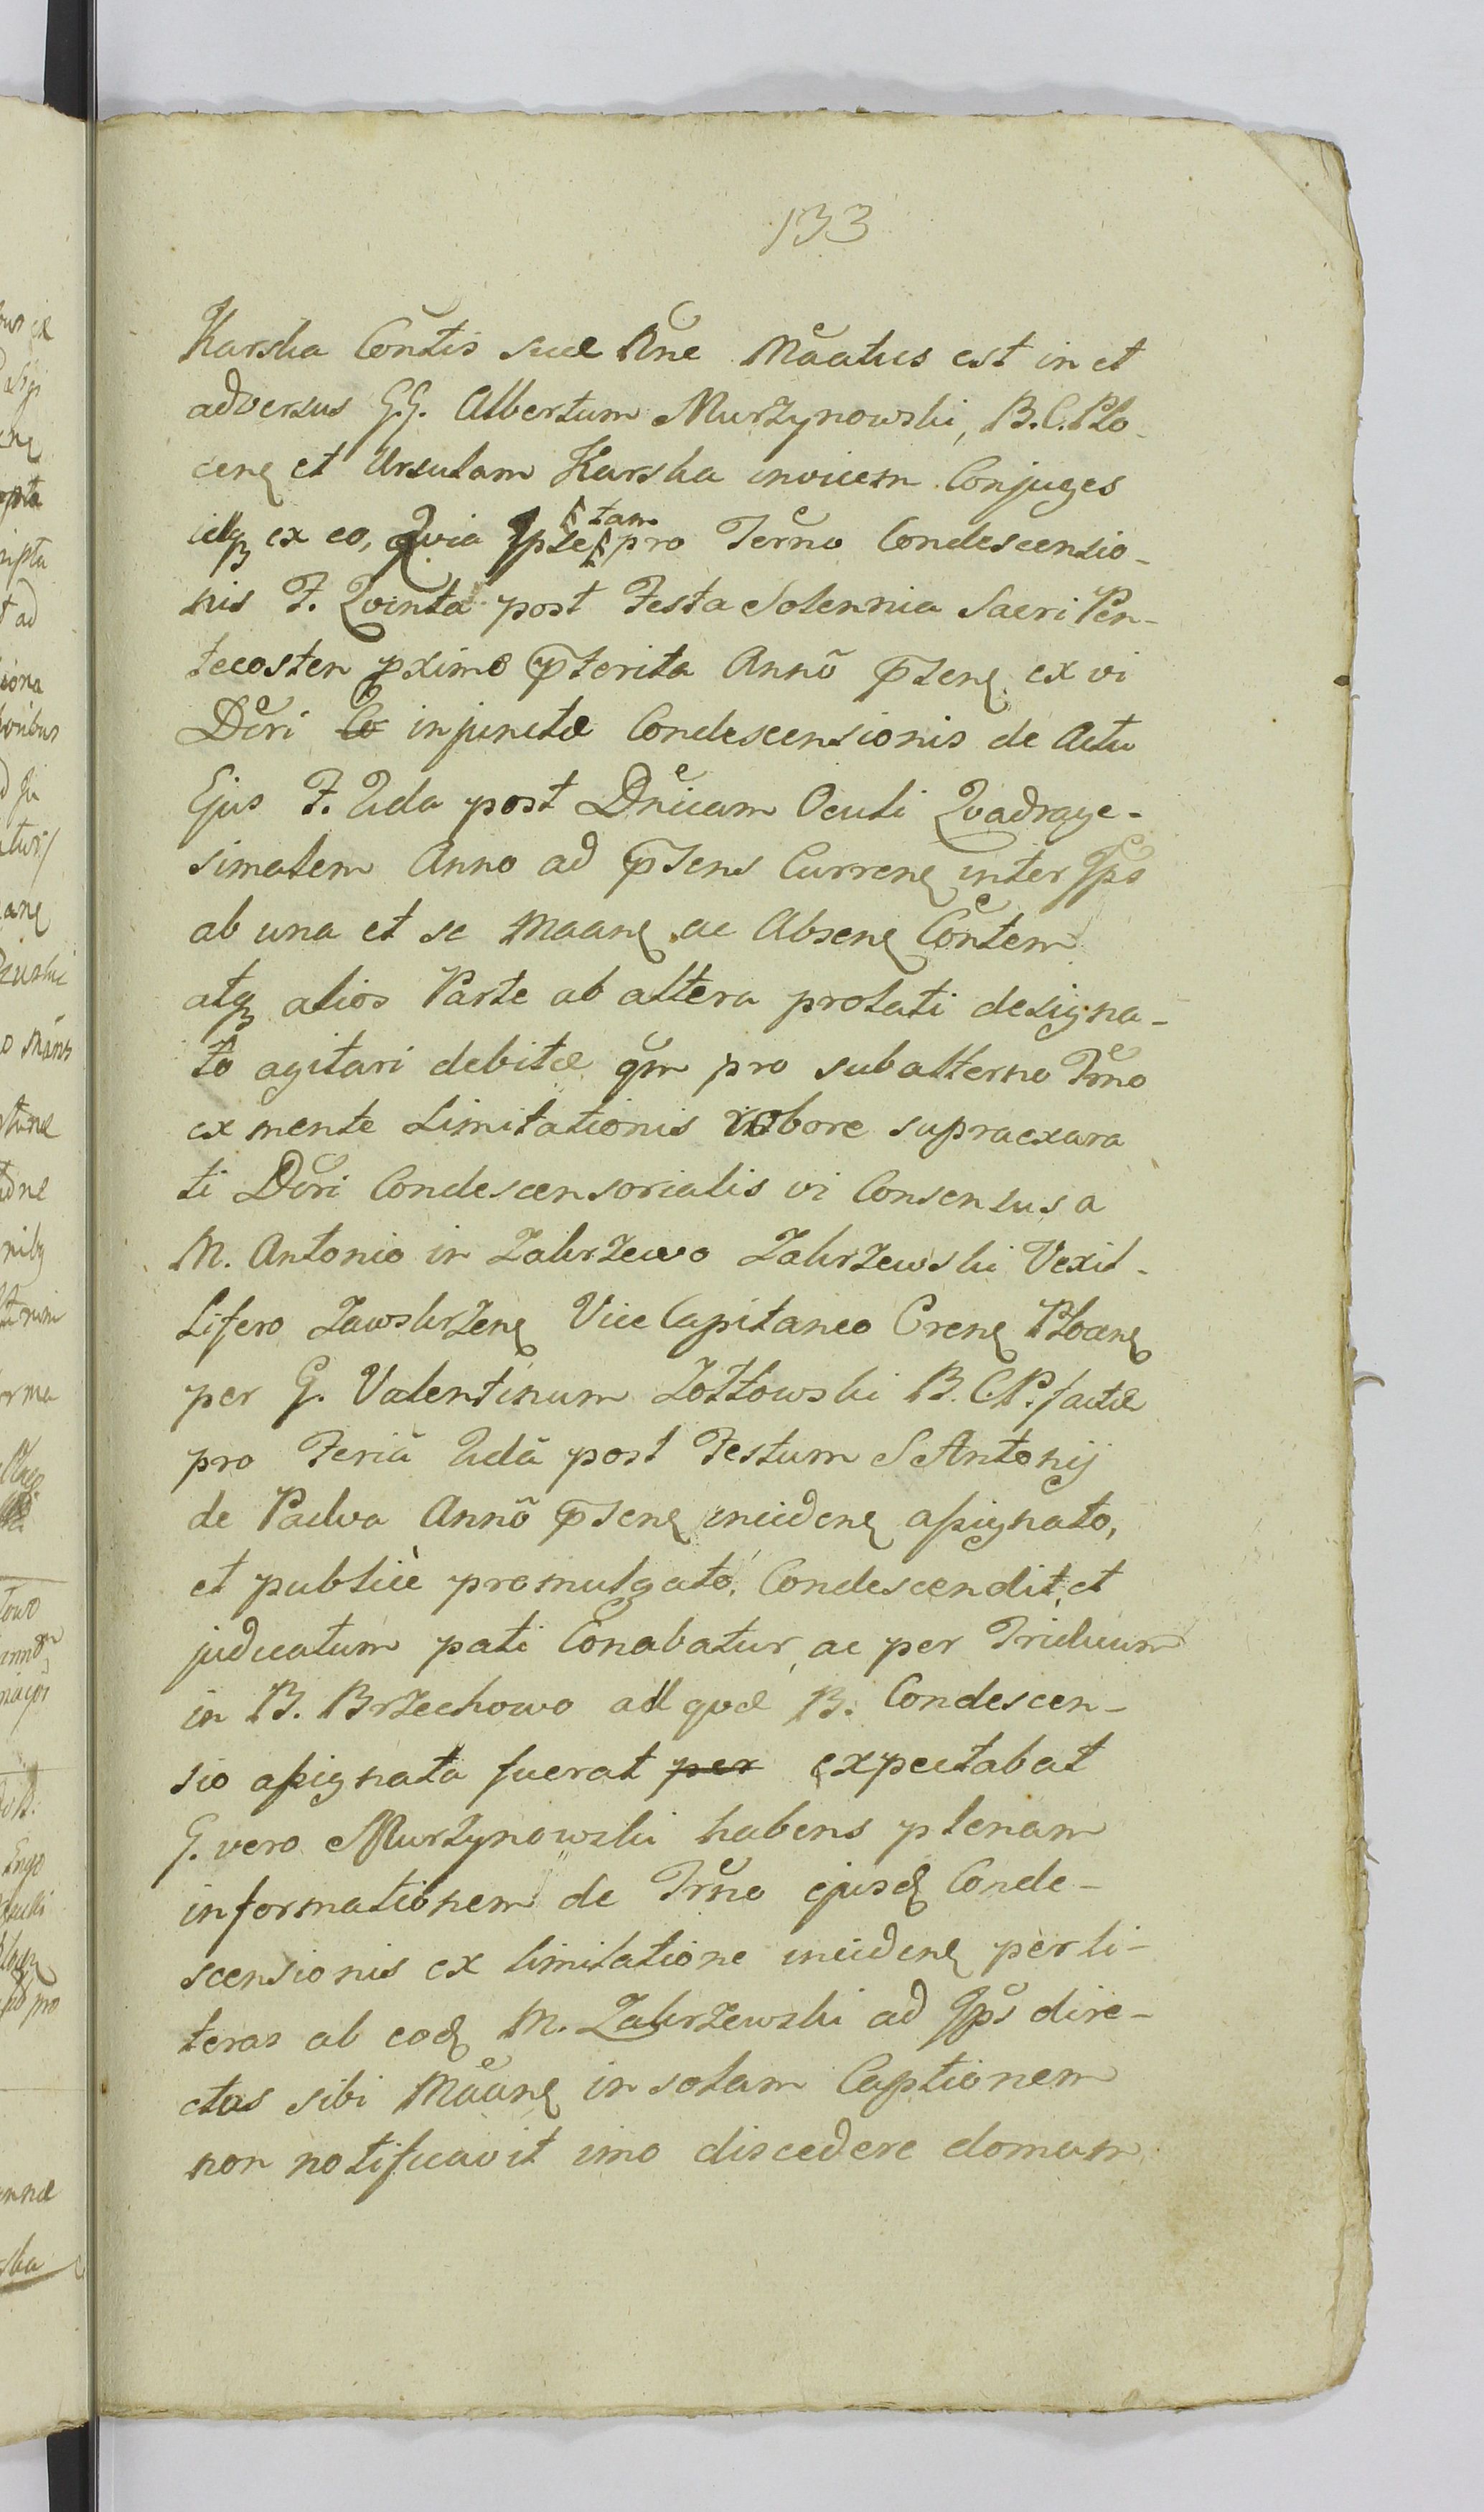 133
Karska Contis suæ Nne Maatus est in et
adversus G.G. Albertum Murzynowski, B.C.Plo-
cen et Ursulam Karska invicem Conjuges
idq ex eo, Qvia Ipse tam pro Terno Condescensio-
nis F. Qvinta post Festa Solennia Sacri Pen-
tecosten pximo pterita Anno pscn ex vi
Dcri Co injunctæ Condescensionis de Actu
Ejus F. IIda post Dnicam Oculi Qvadrage-
simalem Anno ad psens Curren inter Ips
ab una et se Maan ac Absen Contem
atq alios Parte ab altera prolati designa-
to agitari debitæ qm pro subalterno Trno
ex mente Limitationis robore supraexara
ti Dcri Condescensorialis vi Consensus a
M. Antonio in Zakrzewo Zakrzewski Vexil-
lifero Zawskrzen Vice Capitaneo Cren Plocen
per G. Valentinum Zołtowski B.C.P. factæ
pro Feria IIda post Festum S Antonij
de Padva Anno psen inciden assignato,
et publicè promulgato, Condescendit, et
judicatum pati Conabatur, ac per Triduum
in B. Brzechowo ad qvæ B. Condescen-
sio assignata fuerat per expectabat
G. vero Murzynowski habens plenam
informationem de Trno ejusd Conde-
scensionis ex limitatione inciden per li-
teras ab eod M. Zakrzewski ad Ips dire-
ctas sibi Maan in solam Captionem
non notificavit imo discedere domum